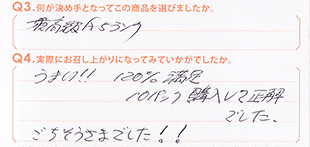 Q3.何が決め手となってこの商品を選びましたか。
最高級A5ランク
Q4.実際にお召し上がりになってみていかがでしたか。
うまい!! 120%満足
10パック購入して正解
でした。
ごちそうさまでした!!